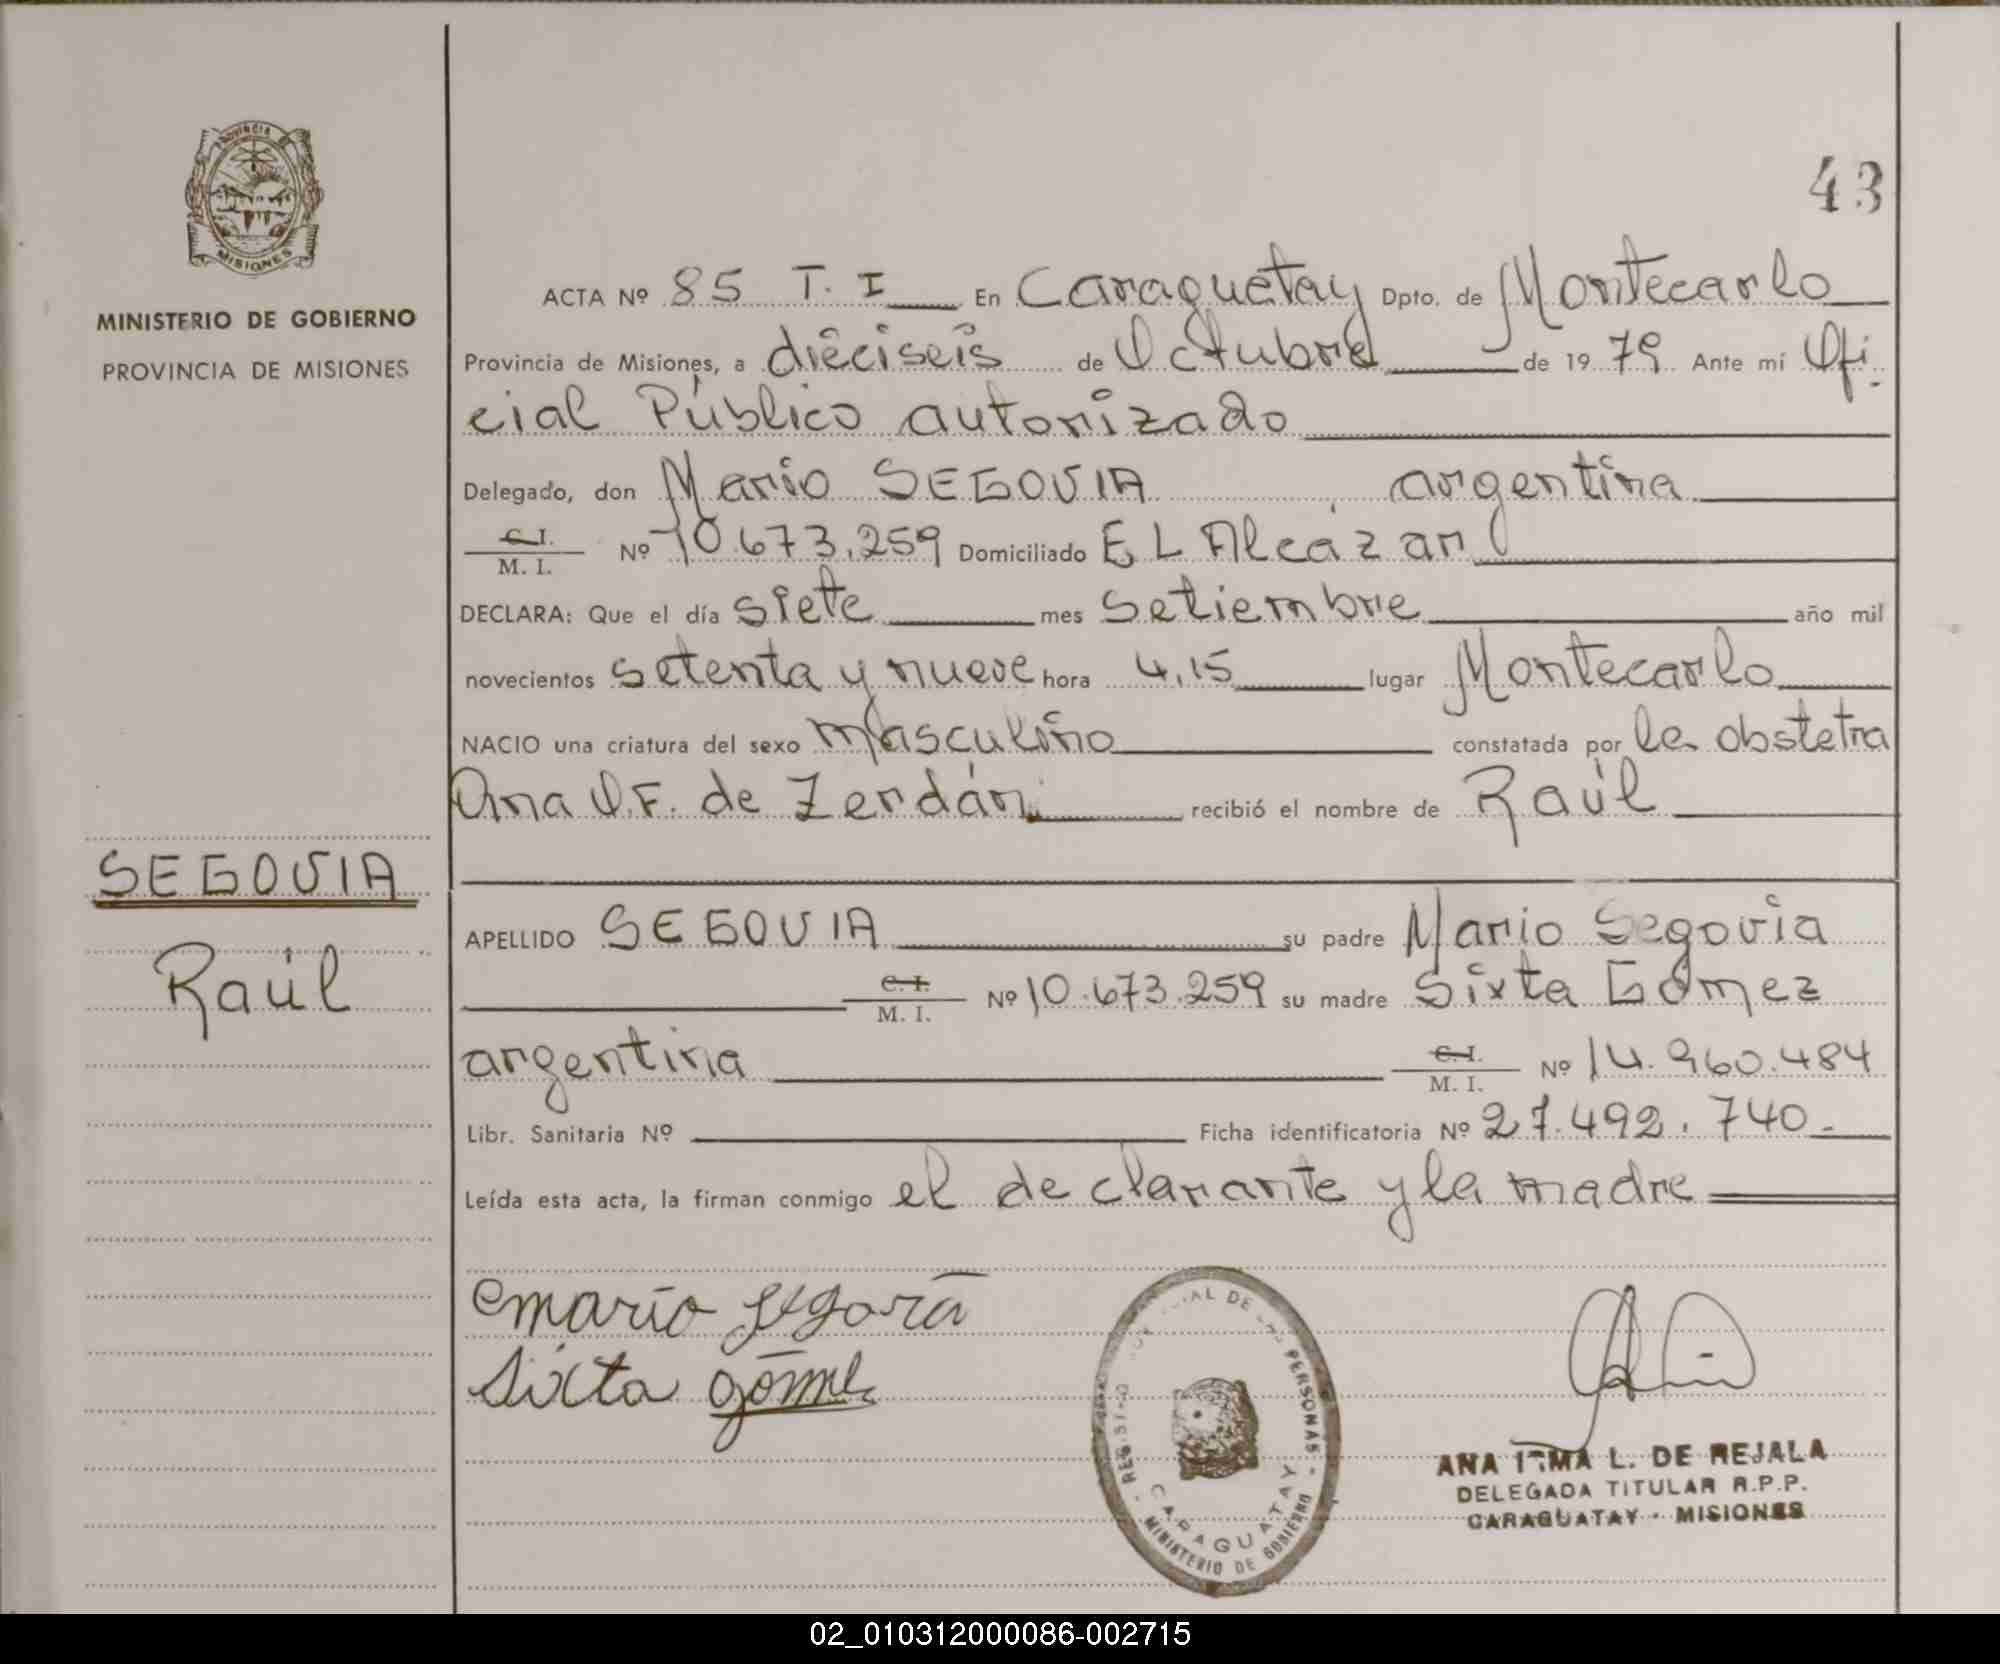 PROVINCIA DE
MISIONES
MINISTERIO DE GOBIERNO
PROVINCIA DE MISIONES
43
ACTA Nº 85 T. I En Caraguatay Dpto. de Montecarlo
Provincia de Misiones, a dieciseis de Octubre de 19 79 Ante mí Ofi-
cial Público autorizado
Delegado, don Mario SEGOVIA, argentina
C. I. / M. I. Nº 10.673.259 Domiciliado EL Alcázar
DECLARA: Que el día siete mes Setiembre año mil
novecientos setenta y nueve hora 4,15 lugar Montecarlo
NACIO una criatura del sexo masculino constatada por la obstetra
Ana O.F. de Zerdán recibió el nombre de Raúl
SEGOVIA
Raúl
APELLIDO SEGOVIA su padre Mario Segovia
C. I. / M. I. Nº 10.673.259 su madre Sixta Gómez
argentina C. I. / M. I. Nº 14.960.484
Libr. Sanitaria Nº Ficha identificatoria Nº 27.492.740.-
Leída esta acta, la firman conmigo el declarante y la madre
Mario Segovia
Sixta Gómez
DE LAS PERSONAS
CARAGUATAY
MINISTERIO DE GOBIERNO
ANA IRMA L. DE REJALA
DELEGADA TITULAR R.P.P.
CARAGUATAY - MISIONES
02_010312000086-002715